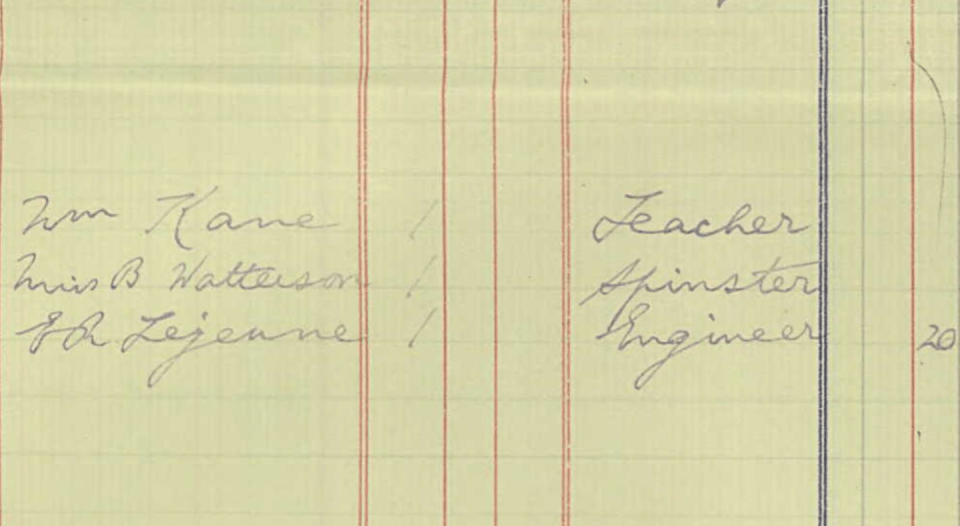 Wm Kane / Teacher
Miss B Watterson / Spinster
Lejeune / Engineer 20